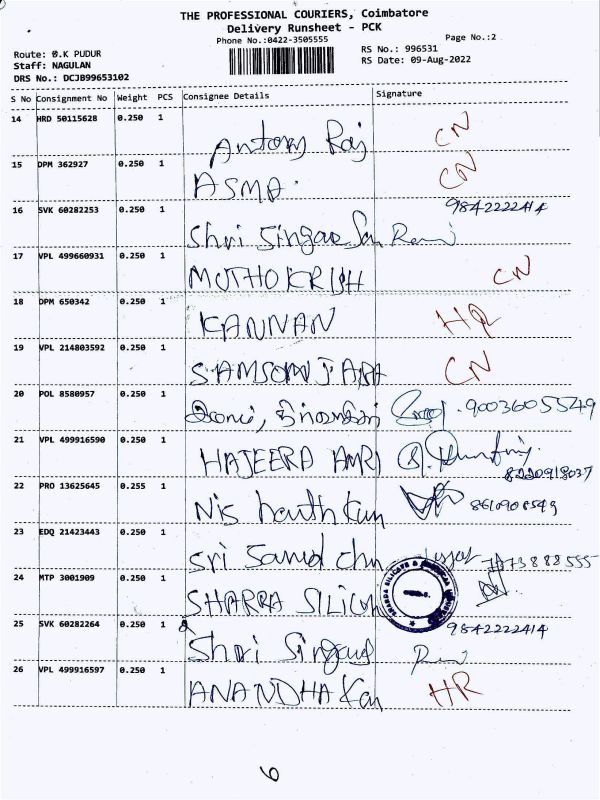 THE PROFESSIONAL COURIERS, Coimbatore
Delivery Runsheet - PCK
Phone No.:0422-3505555
Page No.:2
Route: Ø.K PUDUR
RS No.: 996531
Staff: NAGULAN
RS Date: 09-Aug-2022
DRS No.: DCJB99653102
S No Consignment No Weight PCS Consignee Details Signature
14 HRD 50115628 0.250 1 Antony Raj CN
15 DPM 362927 0.250 1 ASMA. CN
16 SVK 60282253 0.250 1 Shri Singar 9842222414
17 VPL 499660931 0.250 1 MUTHOKRISH CN
18 DPM 650342 0.250 1 KANNAN HR
19 VPL 214803592 0.250 1 SAMSON CN
20 POL 8580957 0.250 1 9003605549
21 VPL 499916590 0.250 1 HAJEERA AMRI 8220918037
22 PRO 13625645 0.255 1
23 EDQ 21423443 0.250 1 Sri
24 MTP 3001909 0.250 1 SHARRA SILICON
25 SVK 60282264 0.250 1 Shri 9842222414
26 VPL 499916597 0.250 1 ANANDHA HR
6